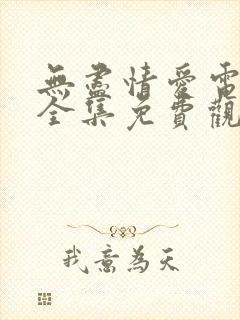 無盡情愛電
全集免費觀
我意為天